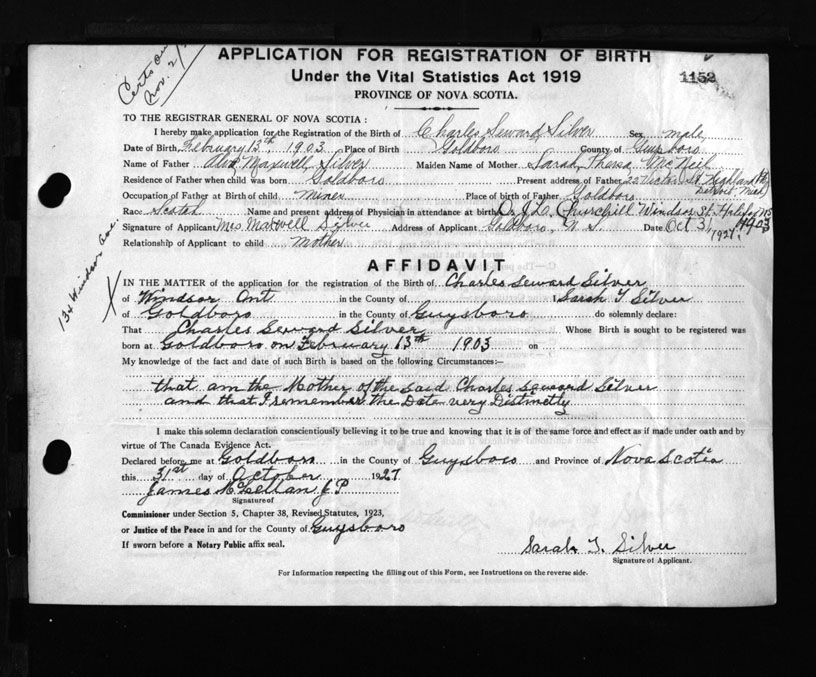 Certs on
Nov. 2/
APPLICATION FOR REGISTRATION OF BIRTH
Under the Vital Statistics Act 1919
1152
PROVINCE OF NOVA SCOTIA.
TO THE REGISTRAR GENERAL OF NOVA SCOTIA :
I hereby make application for the Registration of the Birth of Charles Seward Silver Sex male
Date of Birth February 13th 1903 Place of Birth Goldboro County of Guysboro
Name of Father Maxwell Silver Maiden Name of Mother Sarah Theresa McNeil
Residence of Father when child was born Goldboro Present address of Father 22 Victor St Highland Pk Detroit Mich
Occupation of Father at Birth of child miner Place of birth of Father Goldboro
Race Scotch Name and present address of Physician in attendance at birth Dr J. L. Churchill Windsor St. Halifax NS
Signature of Applicant Mrs Maxwell Silver Address of Applicant Goldboro, N S. Date Oct 31 1927. 4903
Relationship of Applicant to child mother
134 Windsor Ave.
AFFIDAVIT
IN THE MATTER of the application for the registration of the Birth of Charles Seward Silver
of Windsor Ont in the County of I Sarah T Silver
of Goldboro in the County of Guysboro do solemnly declare:
That Charles Seward Silver Whose Birth is sought to be registered was
born at Goldboro on February 13th 1903 on
My knowledge of the fact and date of such Birth is based on the following Circumstances:—
that am the Mother of the said Charles Seward Silver
and that I remember the Date very Distinctly
I make this solemn declaration conscientiously believing it to be true and knowing that it is of the same force and effect as if made under oath and by
virtue of The Canada Evidence Act.
Declared before me at Goldboro in the County of Guysboro and Province of Nova Scotia
this 31st day of October 1927
James McLellan J P
Signature of
Commissioner under Section 5, Chapter 38, Revised Statutes, 1923,
or Justice of the Peace in and for the County of Guysboro
If sworn before a Notary Public affix seal.
Sarah T. Silver
Signature of Applicant.
For Information respecting the filling out of this Form, see Instructions on the reverse side.